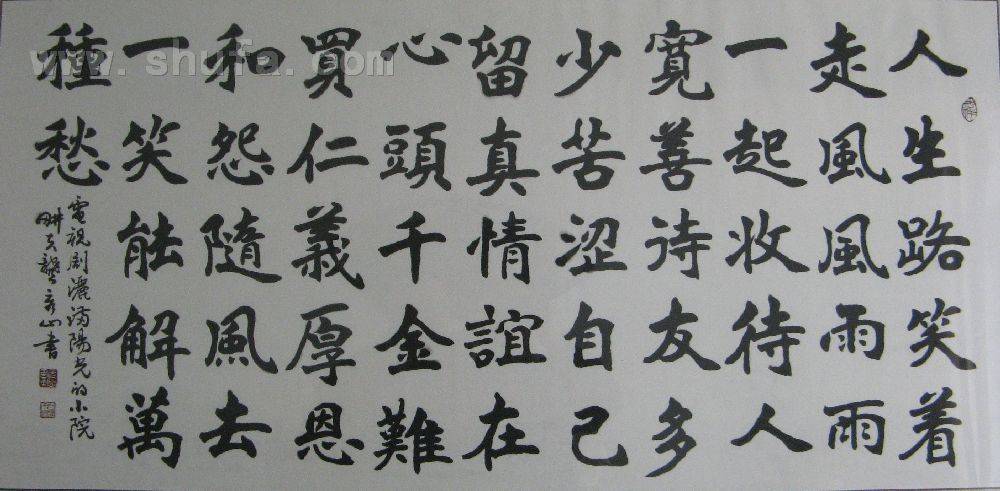 人生路笑着
走風風雨雨
一起收待人
寬善待友多
少苦涩自己
留真情誼在
心頭千金難
買仁義厚恩
和怨隨風去
一笑能解萬
種愁
電視劇灑满陽光的小院
畊夫龔彦山書
www.shufa.com